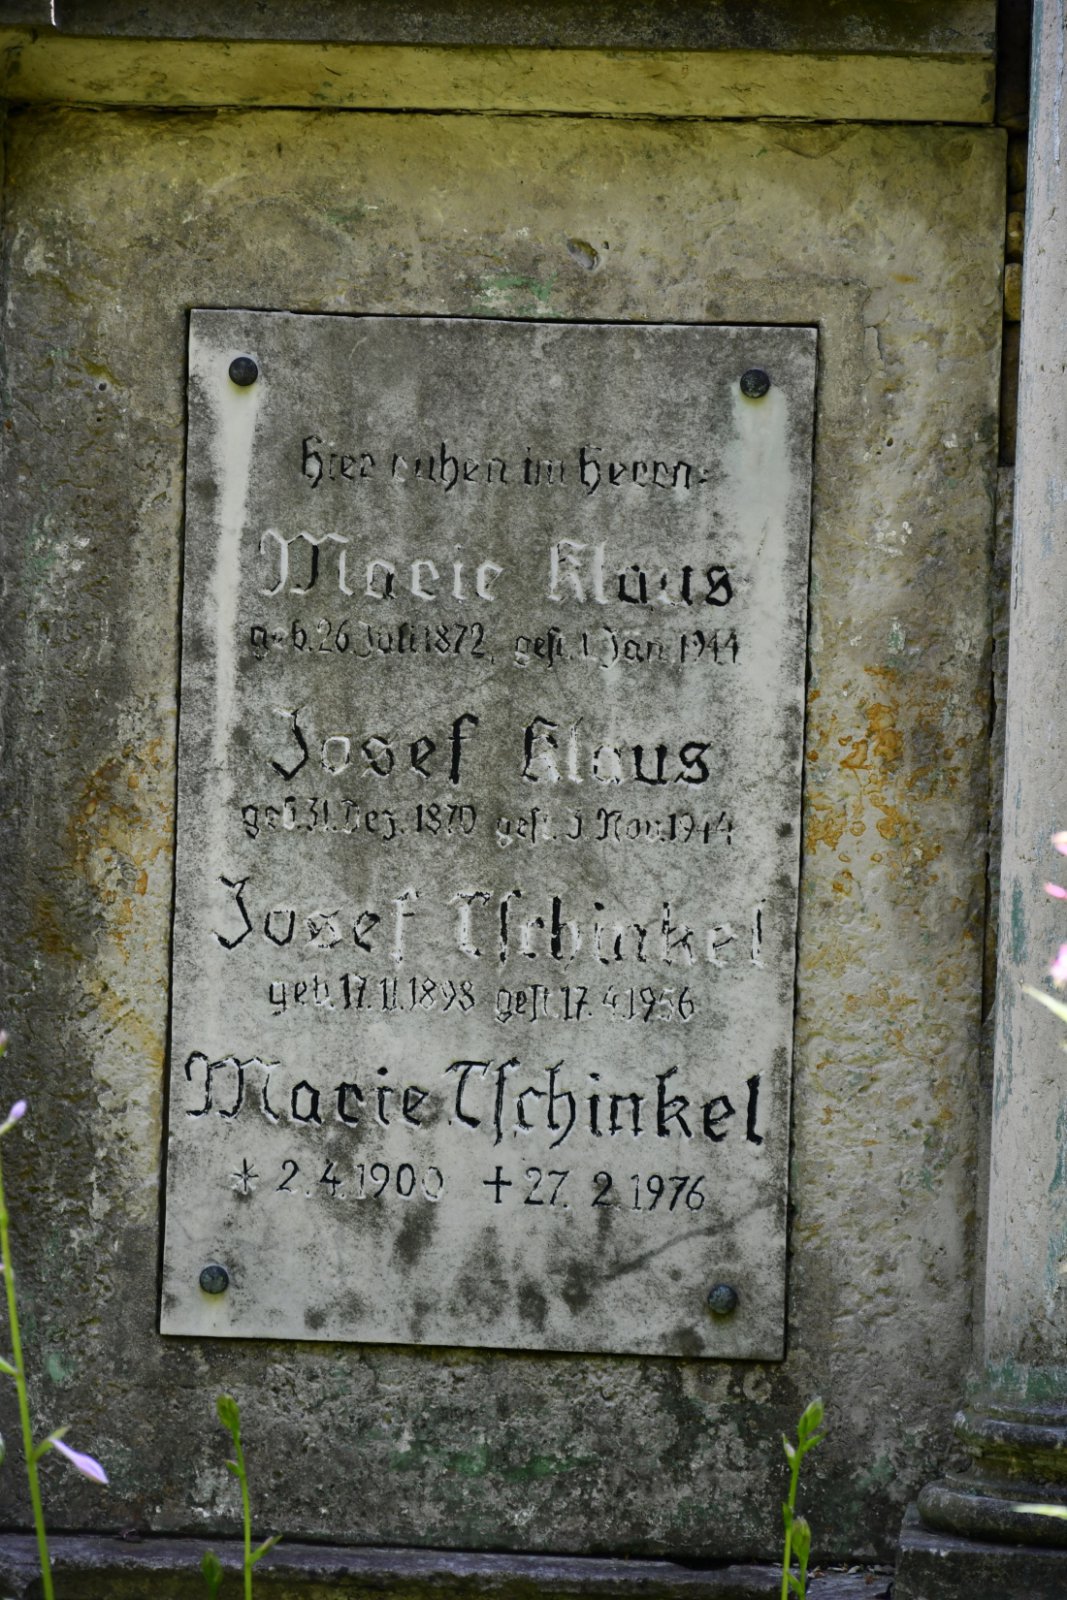 Hier ruhen im Herrn:
Marie Klaus
geb. 26. Juli 1872, gest. 1. Jan. 1944
Josef Klaus
geb. 31. Dez. 1870 gest. Nov. 1944
Josef Tschinkel
geb. 17.11.1898 gest. 17.4.1956
Marie Tschinkel
* 2.4.1900 + 27.2.1976